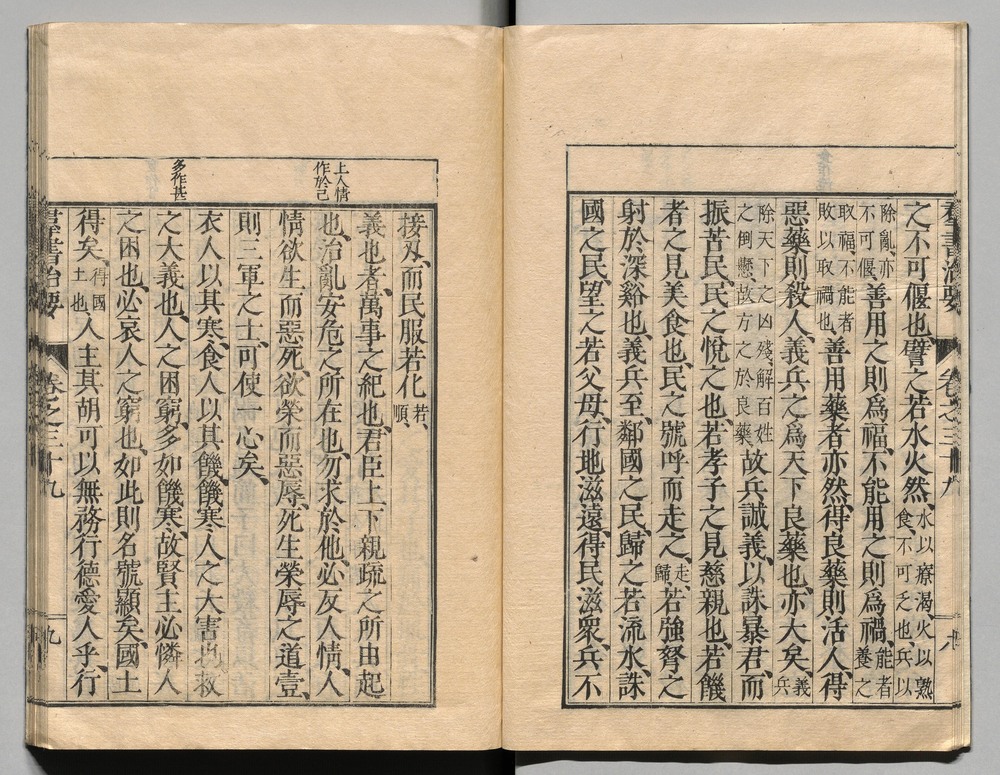 羣書治要 卷之三十九 八
之不可偃也、譬之若水火然、水以療渴、火以熟食、不可乏也、兵以
除亂、亦不可偃、善用之則爲福、不能用之則爲禍、能者養之
取福、不能者敗以取禍也、善用藥者亦然、得良藥則活人、得
惡藥則殺人、義兵之爲天下良藥也、亦大矣、義兵
除天下之凶殘、解百姓之倒懸、故方之於良藥、故兵誠義、以誅暴君、而
振苦民、民之悅之也、若孝子之見慈親也、若饑
者之見美食也、民之號呼而走之、走、歸、若強弩之
射於深谿也、義兵至、鄰國之民、歸之若流水、誅
國之民、望之若父母、行地滋遠、得民滋衆、兵不
接刄、而民服若化若、順、
義也者、萬事之紀也、君臣上下親疏之所由起
上人情作於己
也、治亂安危之所在也、勿求於他、必反人情、人
情欲生而惡死、欲榮而惡辱、死生榮辱之道壹、
則三軍之士、可使一心矣、
衣人以其寒、食人以其饑、饑寒、人之大害也、救
多作甚
之大義也、人之困窮、多如饑寒、故賢主必憐人
之困也、必哀人之窮也、如此則名號顯矣、國士
得矣、得國士也、人主其胡可以無務行德愛人乎、行
羣書治要 卷之三十九 九